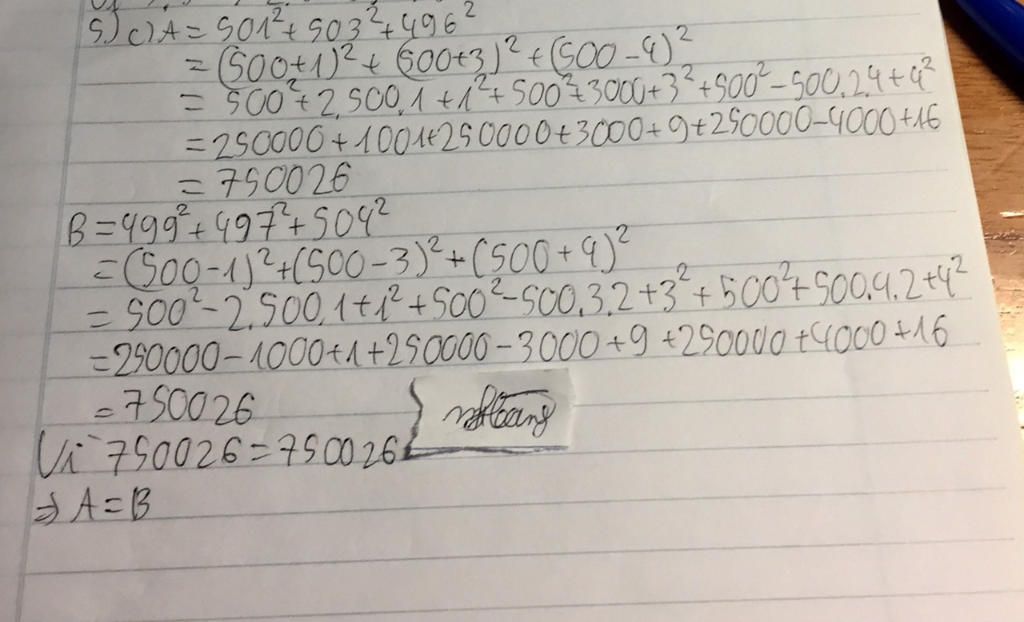 5) c) A = 501² + 503² + 496²
= (500+1)² + (500+3)² + (500-4)²
= 500² + 2.500.1 + 1² + 500² + 3000 + 3² + 500² - 500.2.4 + 4²
= 250000 + 1001 + 250000 + 3000 + 9 + 250000 - 4000 + 16
= 750026
B = 499² + 497² + 504²
= (500-1)² + (500-3)² + (500+4)²
= 500² - 2.500.1 + 1² + 500² - 500.3.2 + 3² + 500² + 500.4.2 + 4²
= 250000 - 1000 + 1 + 250000 - 3000 + 9 + 250000 + 4000 + 16
= 750026
Vì 750026 = 750026
⇒ A = B